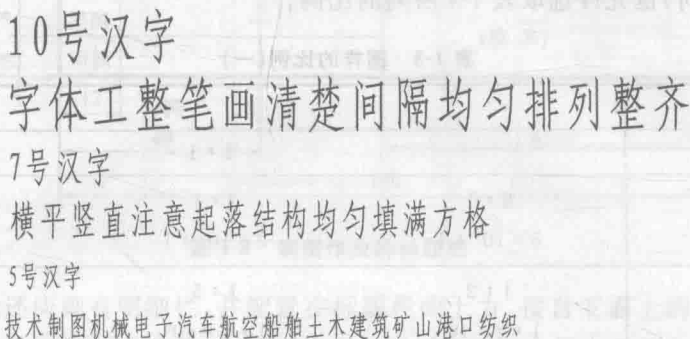 10号汉字
字体工整笔画清楚间隔均匀排列整齐
7号汉字
横平竖直注意起落结构均匀填满方格
5号汉字
技术制图机械电子汽车航空船舶土木建筑矿山港口纺织